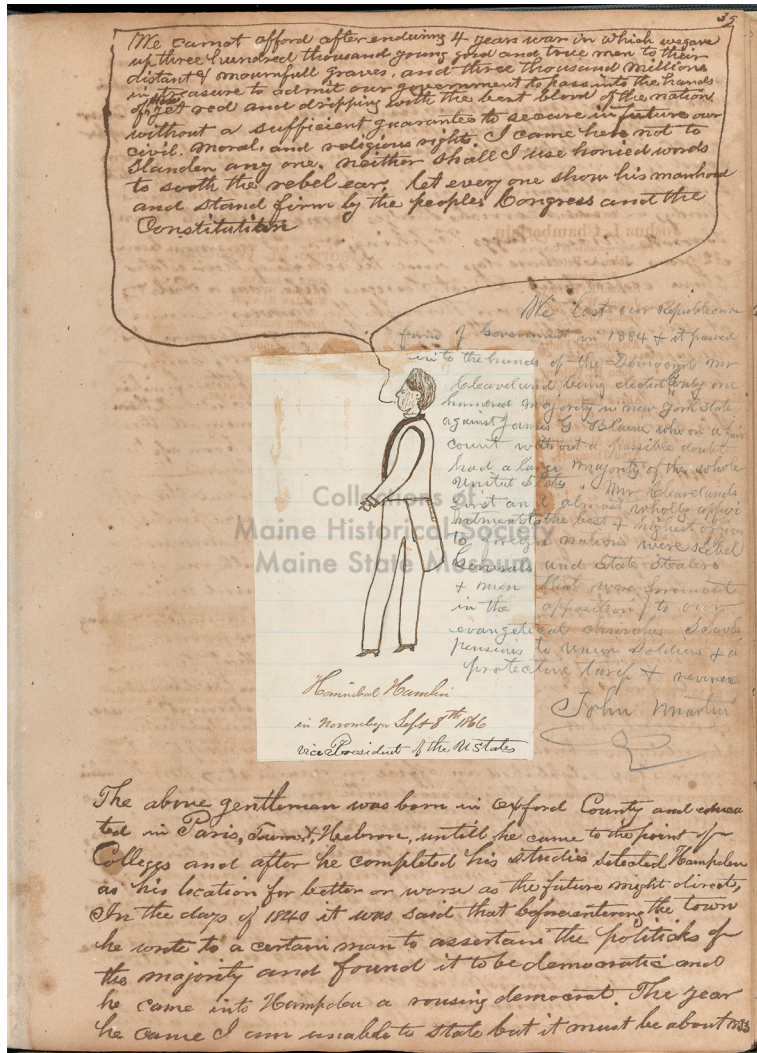 35
We cannot afford after enduring 4 years war in which we gave
up three hundred thousand young good and true men to their
distant & mournfull graves, and three thousand millions
in treasure to admit our government to pass into the hands
of yet red and dripping with the best blood of the nation
without a sufficient guarantee to secure in future our
civil, moral, and religious rights. I came here not to
Slander any one, neither shall I use honied words
to sooth the rebel ear, let every one show his manhood
and stand firm by the peoples Congress and the
Constitution
We lost our Republican
form of Government in 1884 & it passed
into the hands of the Democrats Mr
Cleaveland being elected only one
hundred majority in new York State
against James G Blaine who on a fair
count without a possible doubt
had a large majority of the whole
United States " Mr Cleavelands
first and almost wholly appoi
ntments the best & highest offices
to foreign nations were rebel
Generals and State Stealers
& men that were foremost
in the opposition to our
evangelical churches Schools
pensions to union soldiers & a
protective tariff & revenue
John Martin
Collections of
Maine Historical Society
Maine State Museum
Hannibal Hamlin
in Sept 8th 1866
vice President of the U States
The above gentleman was born in Oxford County and educa
ted in Paris, & Hebron, untill he came to the point of
Colleges and after he completed his studies selected Hampden
as his location for better or worse as the future might direct,
In the days of 1840 it was said that before entering the town
he wrote to a certain man to assertain the politicks of
the majority and found it to be democratic and
he came into Hampden a rousing democrat. The year
he came I am unable to state but it must be about 1833